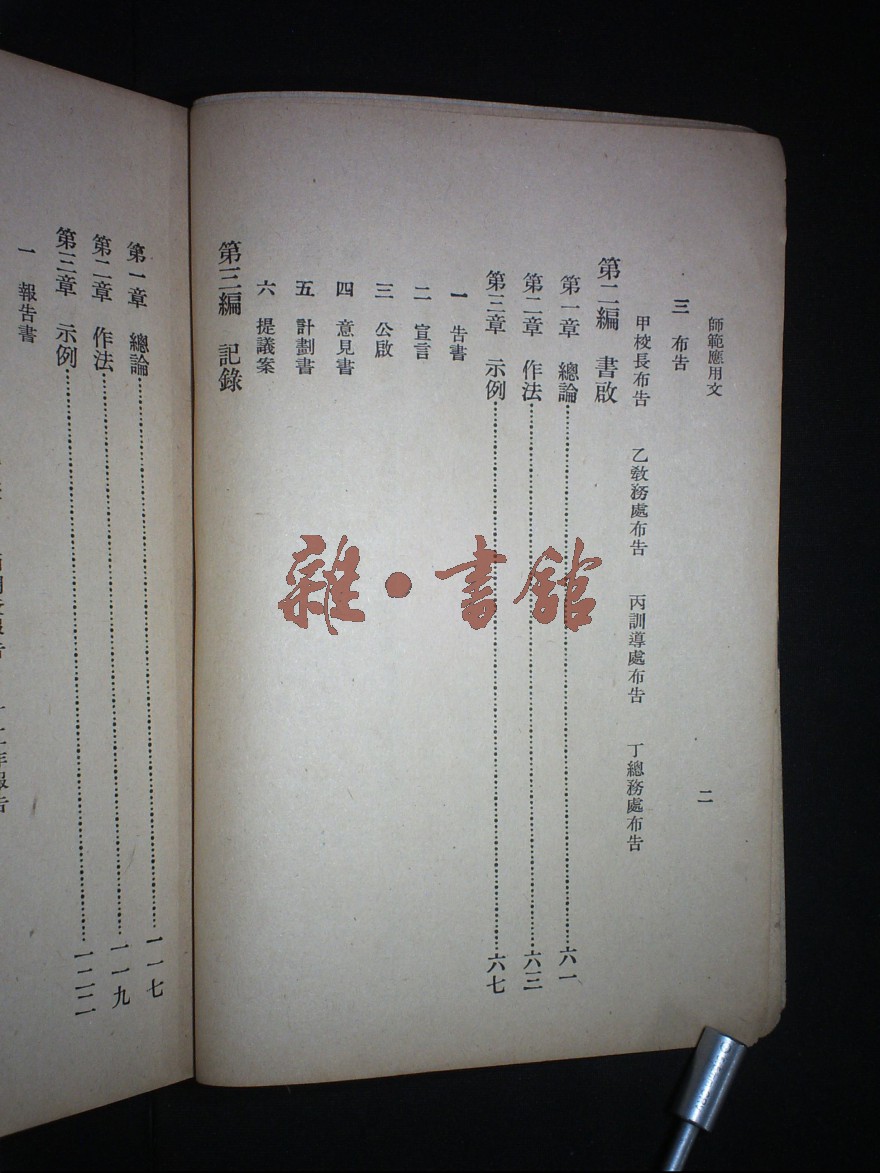 師範應用文
二
三 布告
甲校長布告 乙教務處布告 丙訓導處布告 丁總務處布告
第二編 書啟
第一章 總論……六一
第二章 作法……六三
第三章 示例……六七
一 告書
二 宣言
三 公啟
四 意見書
五 計劃書
六 提議案
第三編 記錄
第一章 總論……一一七
第二章 作法……一一九
第三章 示例……一二二
一 報告書
雜·書館